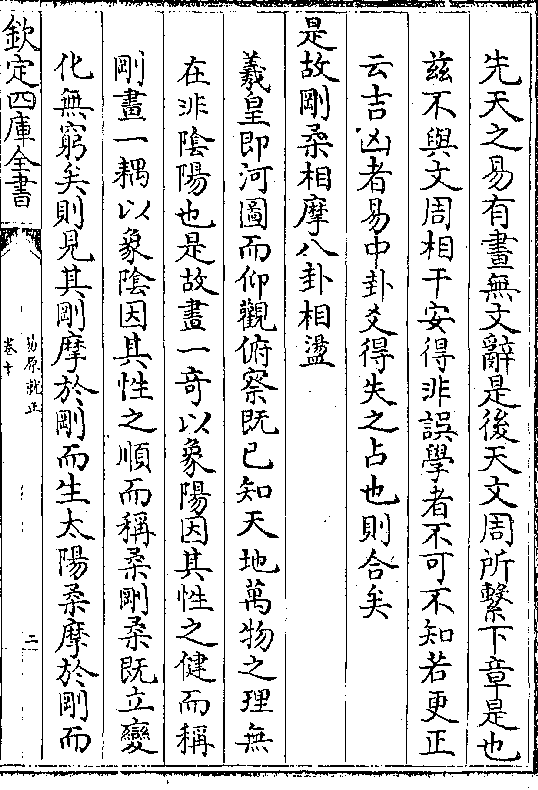 先天之易有畫無文辭是後天文周所繫下章是也
兹不與文周相干安得非誤學者不可不知若更正
云吉凶者易中卦爻得失之占也則合矣
是故剛柔相摩八卦相盪
羲皇即河圖而仰觀俯察既已知天地萬物之理無
在非陰陽也是故畫一奇以象陽因其性之健而稱
剛畫一耦以象陰因其性之順而稱柔剛柔既立變
化無窮矣則見其剛摩於剛而生太陽柔摩於剛而
欽定四庫全書
易原就正
卷十
二